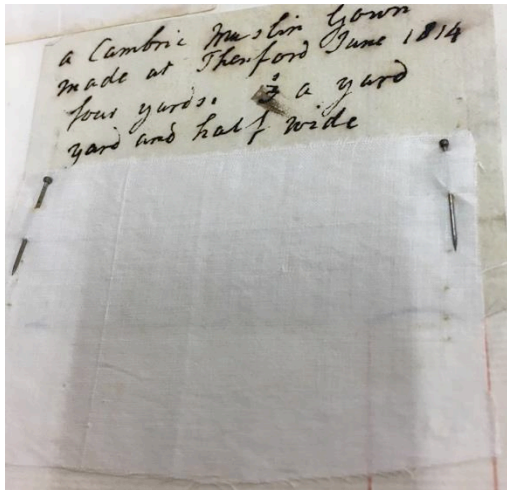 a Cambric Muslin Gown
made at Thenford June 1814
four yards. a yard
yard and half wide